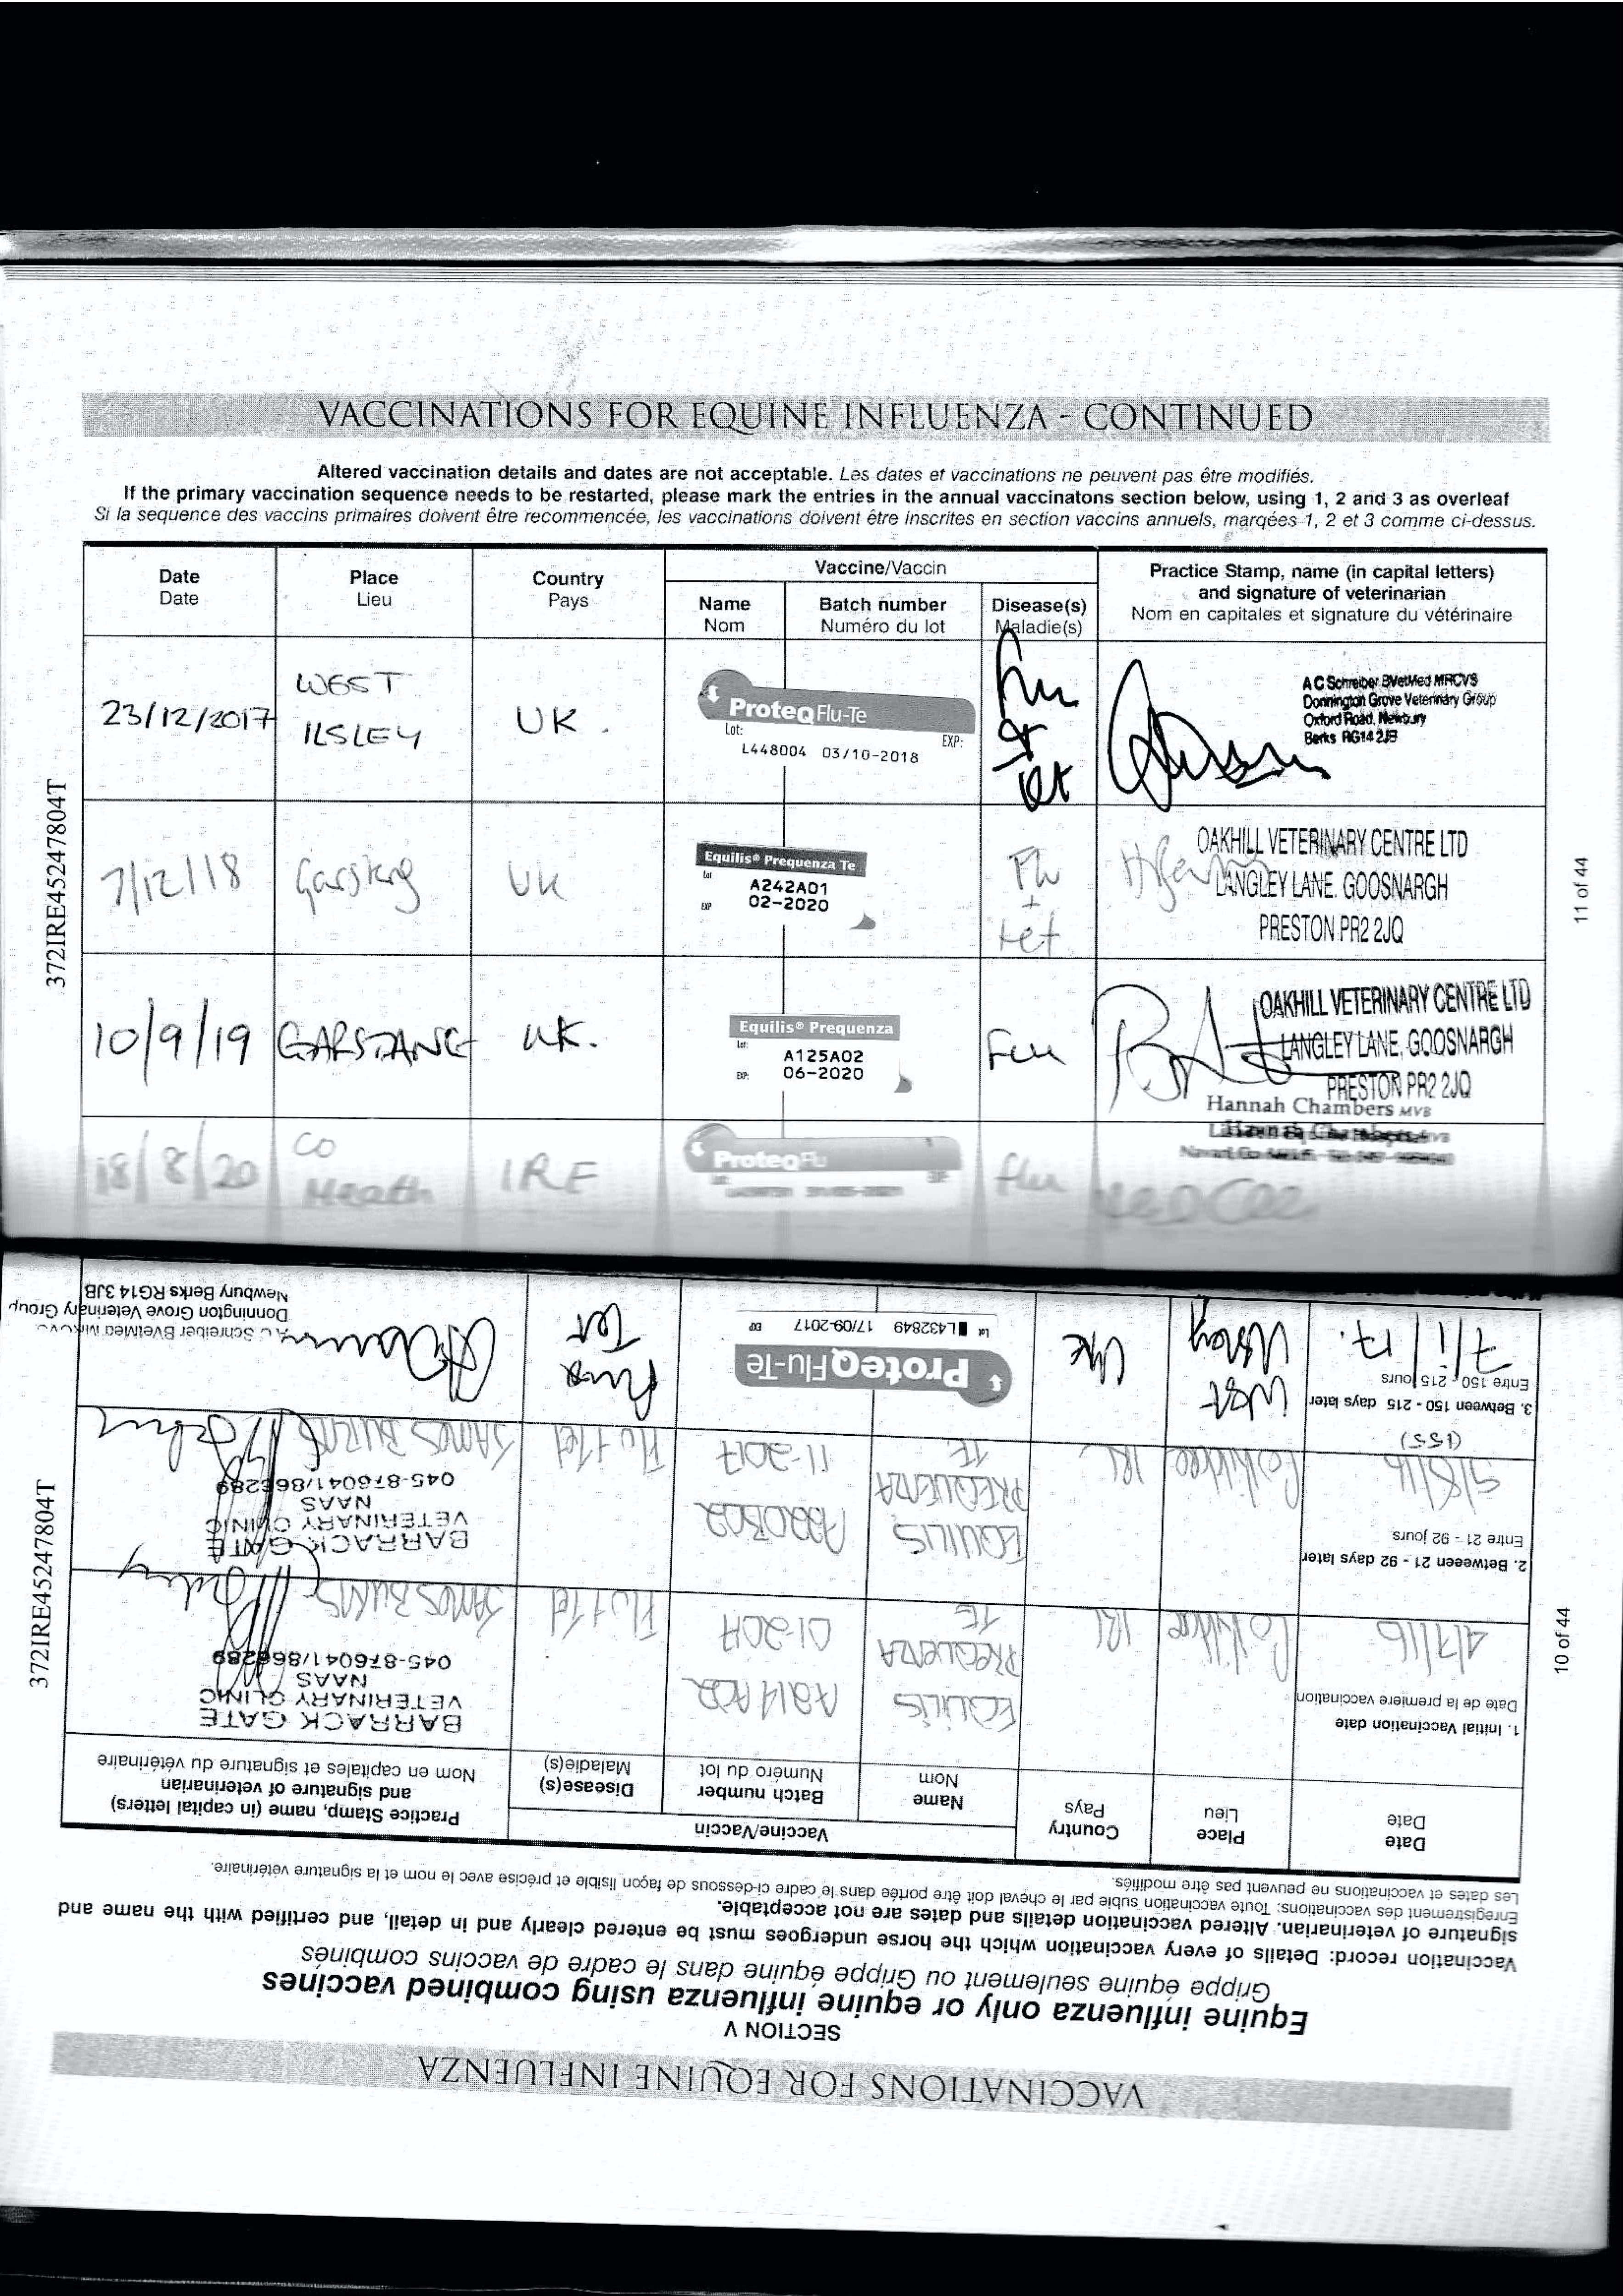 VACCINATIONS FOR EQUINE INFLUENZA - CONTINUED
Altered vaccination details and dates are not acceptable. Les dates et vaccinations ne peuvent pas être modifiés.
If the primary vaccination sequence needs to be restarted, please mark the entries in the annual vaccinatons section below, using 1, 2 and 3 as overleaf
Si la sequence des vaccins primaires doivent être recommencée, les vaccinations doivent être inscrites en section vaccins annuels, marqées 1, 2 et 3 comme ci-dessus.
Date
Date
Place
Lieu
Country
Pays
Vaccine/Vaccin
Name
Nom
Batch number
Numéro du lot
Disease(s)
Maladie(s)
Practice Stamp, name (in capital letters)
and signature of veterinarian
Nom en capitales et signature du vétérinaire
23/12/2017
WEST
ILSLEY
UK.
ProteqFlu-Te
Lot:
EXP:
L448004 03/10-2018
Flu
+
tet
A C Schreiber BVetMed MRCVS
Donnington Grove Veterinary Group
Oxford Road, Newbury
Berks RG14 2JB
7/12/18
Garstang
UK
Equilis® Prequenza Te
Lot
A242A01
EXP
02-2020
Flu
+
tet
OAKHILL VETERINARY CENTRE LTD
LANGLEY LANE. GOOSNARGH
PRESTON PR2 2JQ
10/9/19
GARSTANG
UK.
Equilis® Prequenza
Lot:
A125A02
EXP:
06-2020
Flu
OAKHILL VETERINARY CENTRE LTD
LANGLEY LANE, GOOSNARGH
PRESTON PR2 2JQ
Hannah Chambers MVB
18/8/20
CO
Meath
IRE
ProteqFlu
Flu
372IRE45247804T
11 of 44
VACCINATIONS FOR EQUINE INFLUENZA
SECTION V
Equine influenza only or equine influenza using combined vaccines
Grippe équine seulement ou Grippe équine dans le cadre de vaccins combinés
Vaccination record: Details of every vaccination which the horse undergoes must be entered clearly and in detail, and certified with the name and
signature of veterinarian. Altered vaccination details and dates are not acceptable.
Enregistrement des vaccinations: Toute vaccination subie par le cheval doit être portée dans le cadre ci-dessous de façon lisible et précise avec le nom et la signature vétérinaire.
Les dates et vaccinations ne peuvent pas être modifiés.
Date
Date
Place
Lieu
Country
Pays
Vaccine/Vaccin
Name
Nom
Batch number
Numéro du lot
Disease(s)
Maladie(s)
Practice Stamp, name (in capital letters)
and signature of veterinarian
Nom en capitales et signature du vétérinaire
1. Initial Vaccination date
Date de la premiere vaccination
4/7/16
Co Kildare
IRL
EQUILIS
PREQUENZA
TE
A214A02
01-2017
Flu + Tet
BARRACK GATE
VETERINARY CLINIC
NAAS
045-876041/866289
JAMES BURNS
2. Betweeen 21 - 92 days later
Entre 21 - 92 jours
5/8/16
Co Kildare
IRL
EQUILIS
PREQUENZA
TE
A220B02
11-2017
Flu + Tet
BARRACK GATE
VETERINARY CLINIC
NAAS
045-876041/866289
JAMES BURNS
(155)
3. Between 150 - 215 days later
Entre 150 - 215 jours
7/1/17.
West
Ilsley
UK
ProteqFlu-Te
Lot L432849 17/09-2017 EXP
Flu
Tet
A C Schreiber BVetMed MRCVS
Donnington Grove Veterinary Group
Newbury Berks RG14 3JB
372IRE45247804T
10 of 44